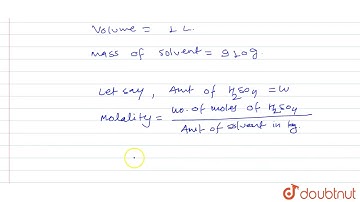 Volume = 1 L.
Mass of solvent = 910g.
Let say, Amt of H2SO4 = W
Molality = no. of moles of H2SO4
Amt of solvent in kg.
doubtnut